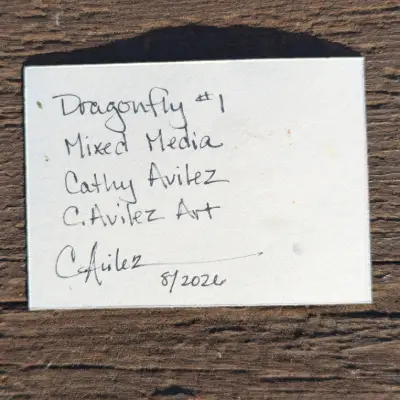 Dragonfly #1
Mixed Media
Cathy Avilez
C. Avilez Art
C. Avilez
8/2026